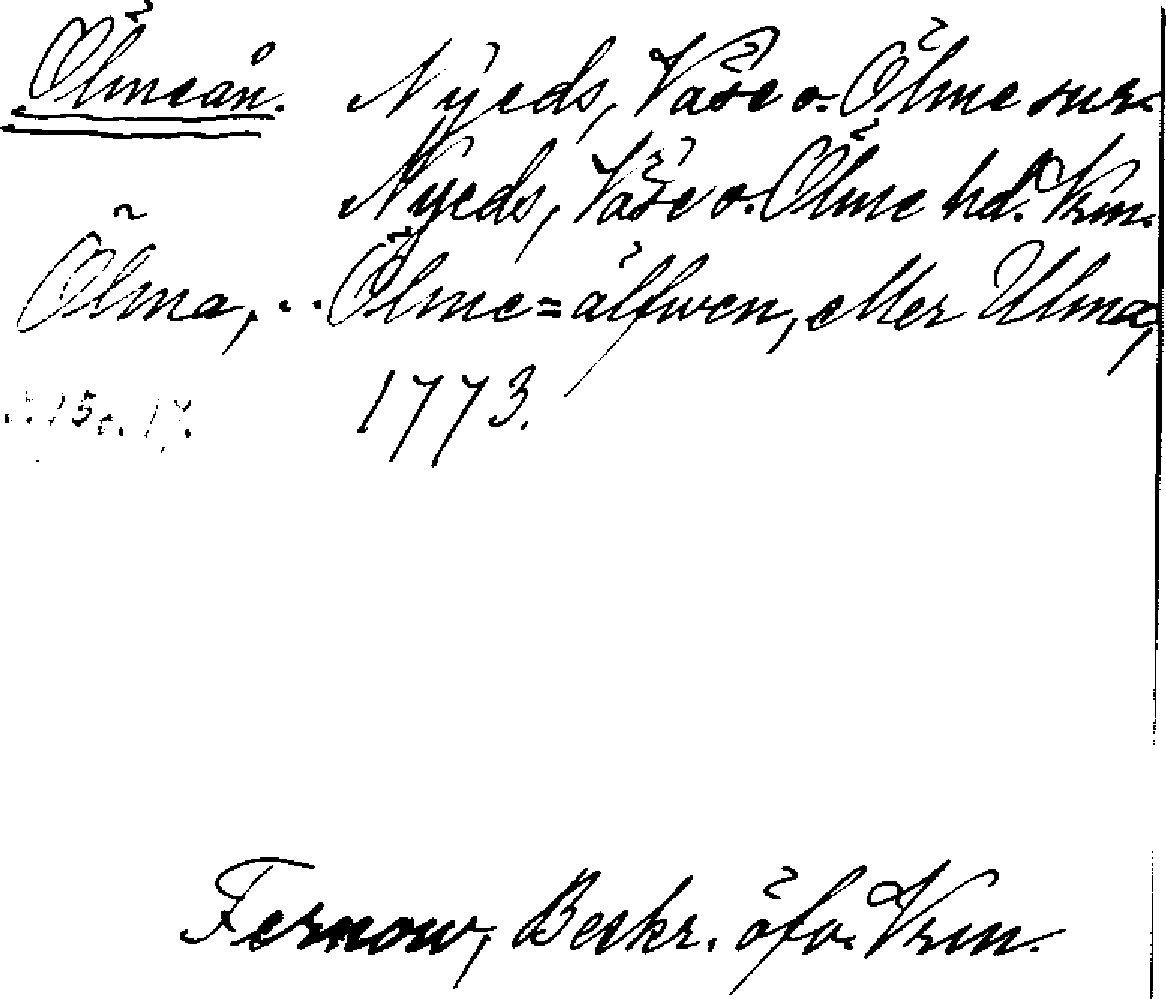 Ölmeån. Nyeds, Väse o. Ölme snr.
Nyeds, Väse o. Ölme hd. Vrm.
Ölma, .. Ölme=älfwen, eller Ulma,
1773.
Fernow, Beskr. öfv. Vrm.